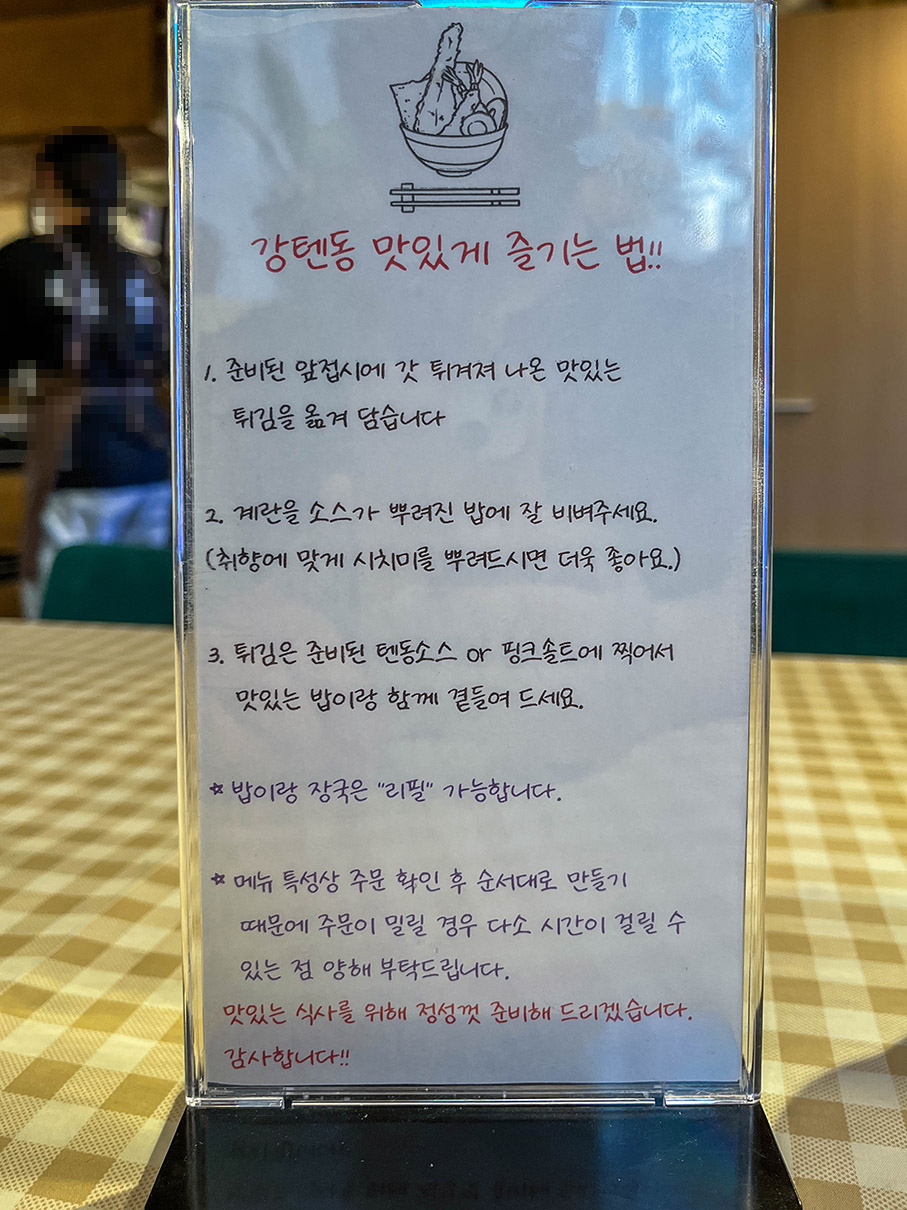 강텐동 맛있게 즐기는 법!!
1. 준비된 앞접시에 갓 튀겨져 나온 맛있는
튀김을 옮겨 담습니다
2. 계란을 소스가 뿌려진 밥에 잘 비벼주세요.
(취향에 맞게 시치미를 뿌려드시면 더욱 좋아요.)
3. 튀김은 준비된 텐동소스 or 핑크솔트에 찍어서
맛있는 밥이랑 함께 곁들여 드세요.
☆ 밥이랑 장국은 "리필" 가능합니다.
☆ 메뉴 특성상 주문 확인 후 순서대로 만들기
때문에 주문이 밀릴 경우 다소 시간이 걸릴 수
있는 점 양해 부탁드립니다.
맛있는 식사를 위해 정성껏 준비해 드리겠습니다.
감사합니다!!